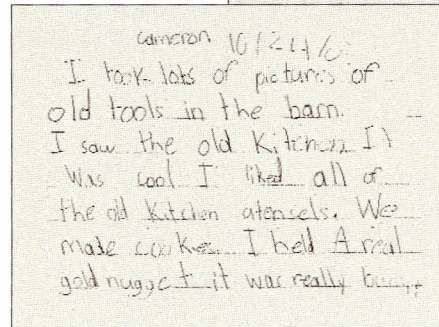 cameron 10/24/0
I took lots of pictures of
old tools in the barn.
I saw the old Kitchen It
Was cool I liked all of
the old Kitchen atensels. We
made cookies. I held A real
gold nugget it was really